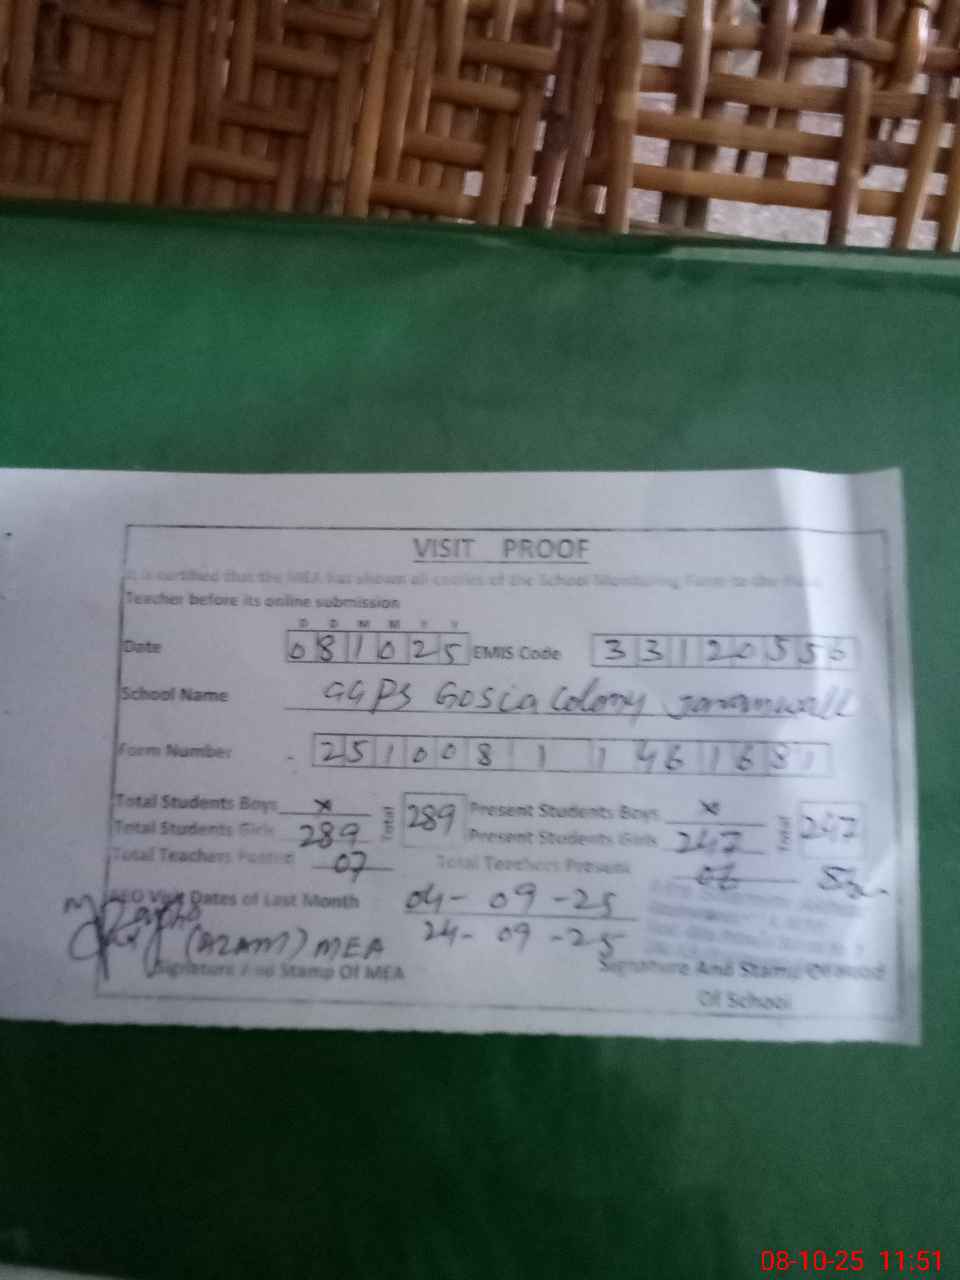 VISIT PROOF
It is certified that the MEA has shown all copies of the School Monitoring Form to the Head
Teacher before its online submission
D D M M Y Y
Date 081025 EMIS Code 33120556
School Name GGPS Gosia Colony Jaranwala
Form Number 251008 1 1 461681
Total Students Boys x Total 289 Present Students Boys x Total 247
Total Students Girls 289 Present Students Girls 247
Total Teachers Posted 07 Total Teachers Present 06
AEO Visit Dates of Last Month 04-09-25
24-09-25
(AZAM) MEA
Signature And Stamp Of MEA Signature And Stamp Of Head
Of School
08-10-25 11:51